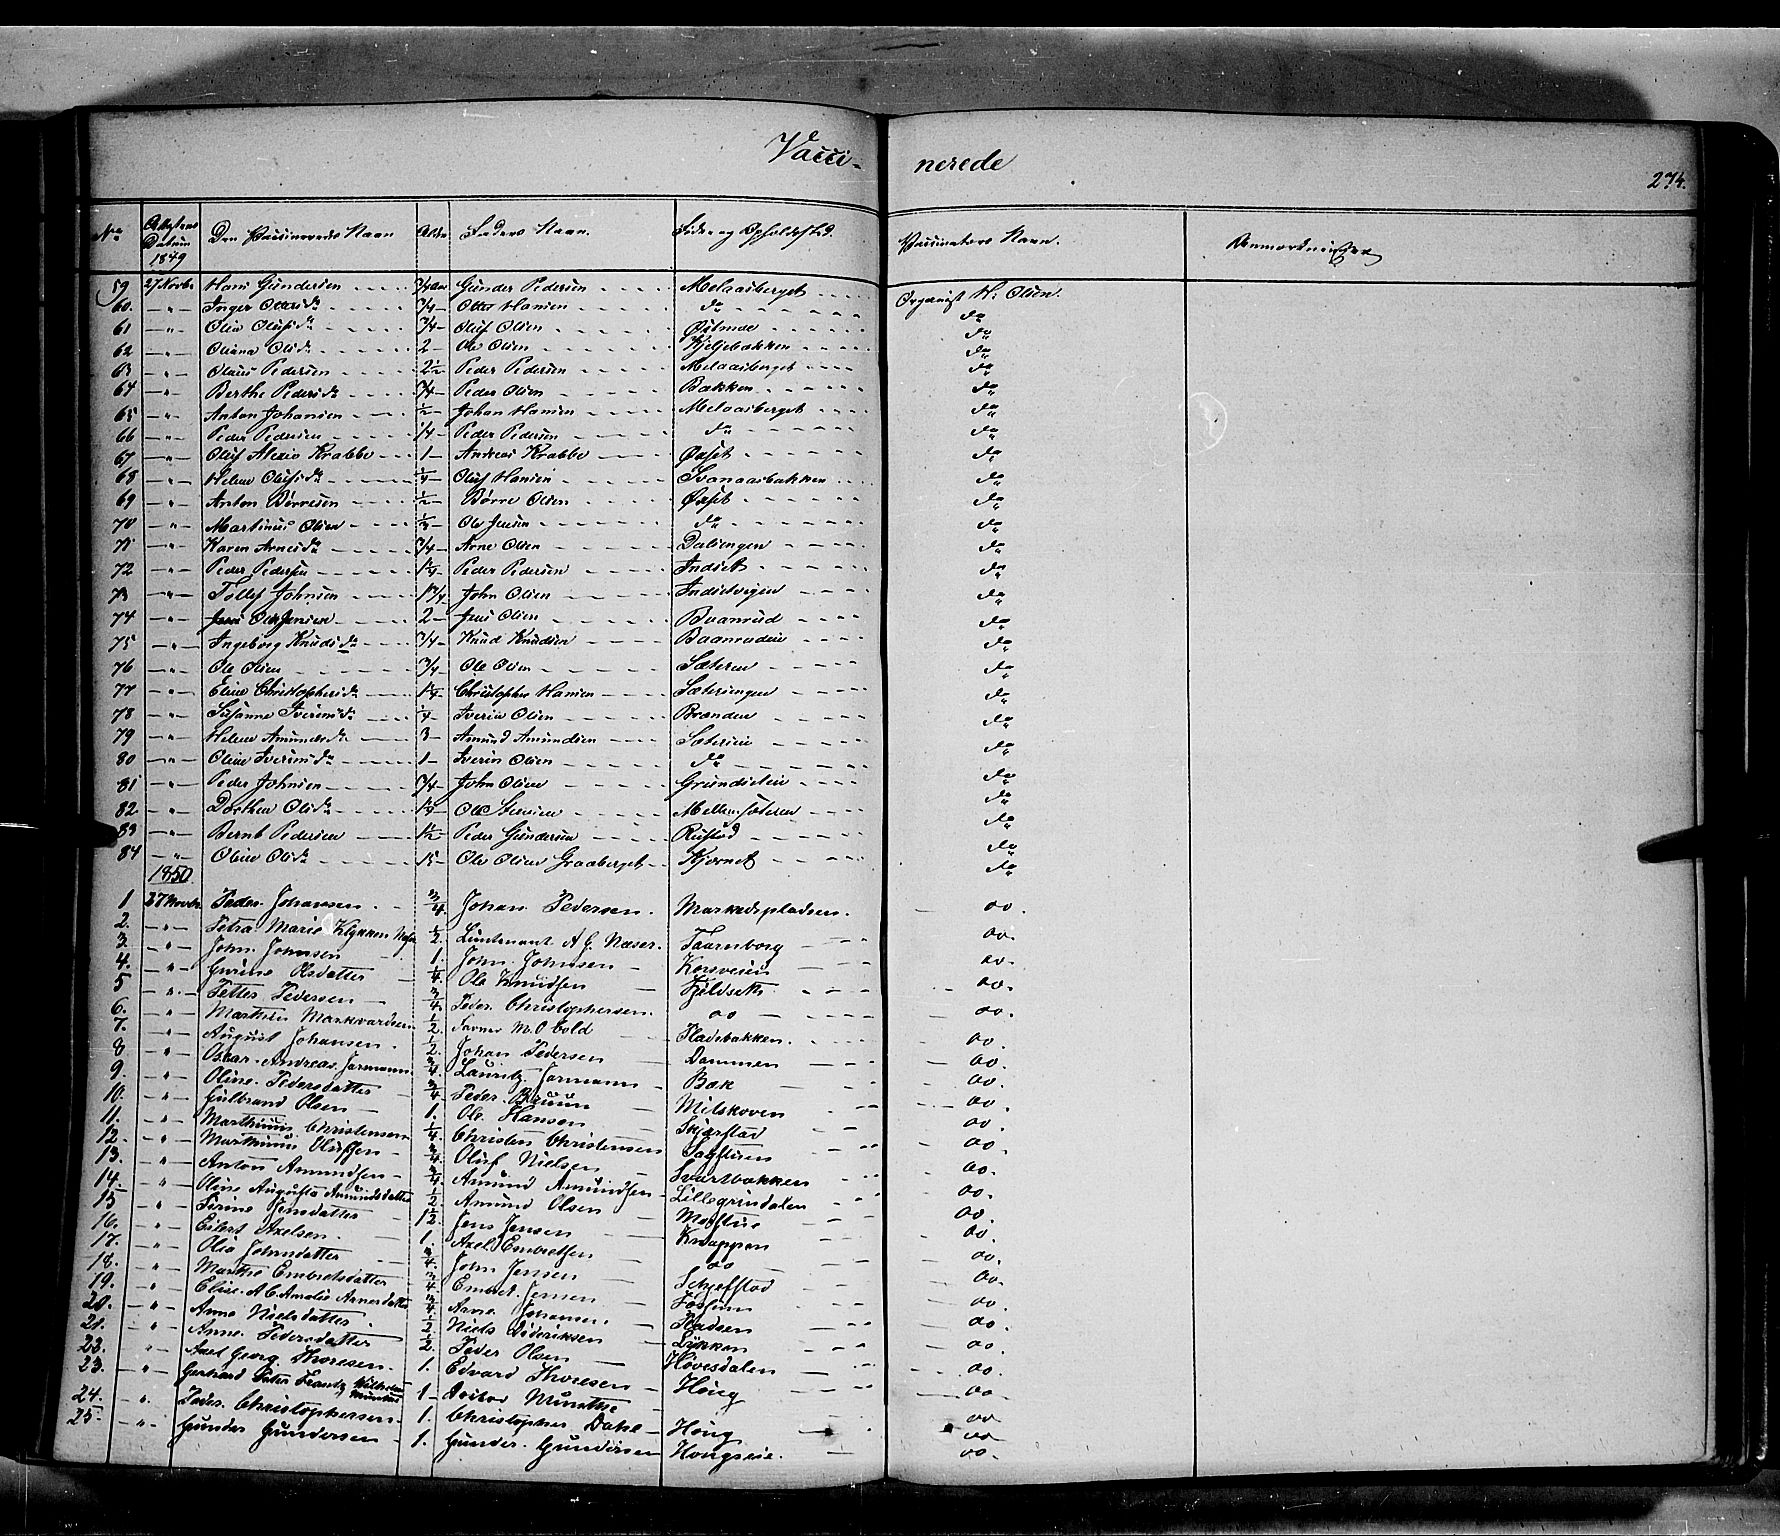 Vacci- nerede
274.
No Attestens Datum 1849 Den Vaccineredes Navn Alder Faders Navn Fødes og Opholdssted. Vaccinators Navn. Anmærkninger
59 27 Novbr Hans Gundersen 3/4 Aar Gunder Pedersen Melaasberget Organist H. Olsen.
60. -"- Inger Ottersdr 3/4 Otter Hansen do do
61 -"- Olia Olufsdr 3/4 Oluf Olsen do
62 -"- Oliana Olsdr 2 Ole Olsen Kjelsebakken do
63 -"- Olaus Pedersen 2 1/2 Peder Pedersen Melaasberget do
64 -"- Berthe Pedersdr 3/4 Peder Olsen Bakken do
65 -"- Anton Johansen 1/2 Johan Hansen Melaasberget do
66 -"- Peder Pedersen 1/4 Peder Pedersen do do
67 -"- Oluf Alexis Krabbe 1 Andreas Krabbe Øxset do
68 -"- Helene Olufsdr 1/4 Oluf Hansen Svanaasbakken do
69 -"- Anton Børresen 1/2 Børre Olsen Øxset do
70 -"- Martinus Olsen Ole Jensen do do
71 -"- Karen Arnesdr 3/4 Arne Olsen Dalsengen do
72 -"- Peder Pedersen 1 1/4 Peder Pedersen Indset do
73 -"- Tollef Johnsen 1 3/4 John Olsen Indsetvegen do
74 -"- Ole Jensen 2 Jens Olsen do
75 -"- Ingeborg Knudsdr 3/4 Knud Knudsen do
76 -"- Ole Olsen 3/4 Ole Olsen Sæteren do
77 -"- Eline Christophersdr 1 1/4 Christopher Hansen Sæterengen do
78 -"- Susanne Iversensdr 1/4 Iverin Olsen Brænden do
79 -"- Helene Amundsdr 3 Amund Amundsen do
80 -"- Oline Iverinsdr 1 Iverin Olsen do do
81 -"- Peder Johnsen 3/4 John Olsen Grundseteie do
82 -"- Dorthea Olsdr 1 1/4 Ole Steensen Mellemsæteren do
83 -"- Bernt Pedersen 1 1/2 Peder Gundersen Rustad do
84 -"- Oline Olsdr 15 Ole Olsen Graaberget Kjernet do
1850
1 27 Novbr. Peder Johansen. 3/4 Johan Pedersen. Markedspladsen. do.
2. -"- Petra Marie Klykken Næser 1/2 Lieutenant A. G. Næser. Taarnborg do.
3. -"- John Johnsen 1. John Johnsen do.
4. -"- Gurine Olsdatter 1/4 Ole Knudsen Kjeldseth do.
5 -"- Petter Pedersen 3/4 Peder Christophersen. do do.
6. -"- Markus Markvardsen 1/2 Farver M. O bold Fladebakken. do.
7. -"- August Johansen. 1/2 Johan Pedersen Dammen do.
8 -"- Oscar Andreas Jarmann 3/4 Lauritz Jarmann Bæk do.
9. -"- Oline Pedersdatter 3/4 Peder Bruun Milskoven do.
10. -"- Gulbrand Olsen 1. Ole Hansen Skjærstad do.
11. -"- Marthinus Christensen 1/4 Christen Christensen Sagstuen do.
12. -"- Marthinus Olufsen 3/4 Oluf Nielsen Svartbakken do.
13. -"- Anton Amundsen 3/4 Amund Amundsen Lillegrindalen do.
14. -"- Oline Augusta Amundsdatter 1/2 Amund Olsen Mostue do.
15 -"- Sirine Jensdatter 1 1/2 Jens Jensen Knappen do.
16. -"- Eilert Axelsen. 1. Axel Embretsen do do.
17. -"- Olia Johnsdatter 3/4 John Jensen do.
18. -"- Marthe Embretsdatter 3/4 Embret Jensen do.
19. -"- Elise A C Amalie Arnesdatter 3/4 Arne Johansen do.
20. -"- Anne Nielsdatter. 1/2 Niels Dideriksen Lykken do.
21. -"- Anne Pedersdatter 1/2 Peder Olsen Hovesdalen do.
22. -"- Axel Georg Thoresen. 1. Edvard Thoresen Houg do.
23. -"- Gerhard Peter Frantz Wilhelm Munthe 1 Munthe do.
24. -"- Peder Christophersen 1. Christopher Dahl Houg do.
25. -"- Gunder Gundersen 1. Gunder Gundersen Hougseie. do.